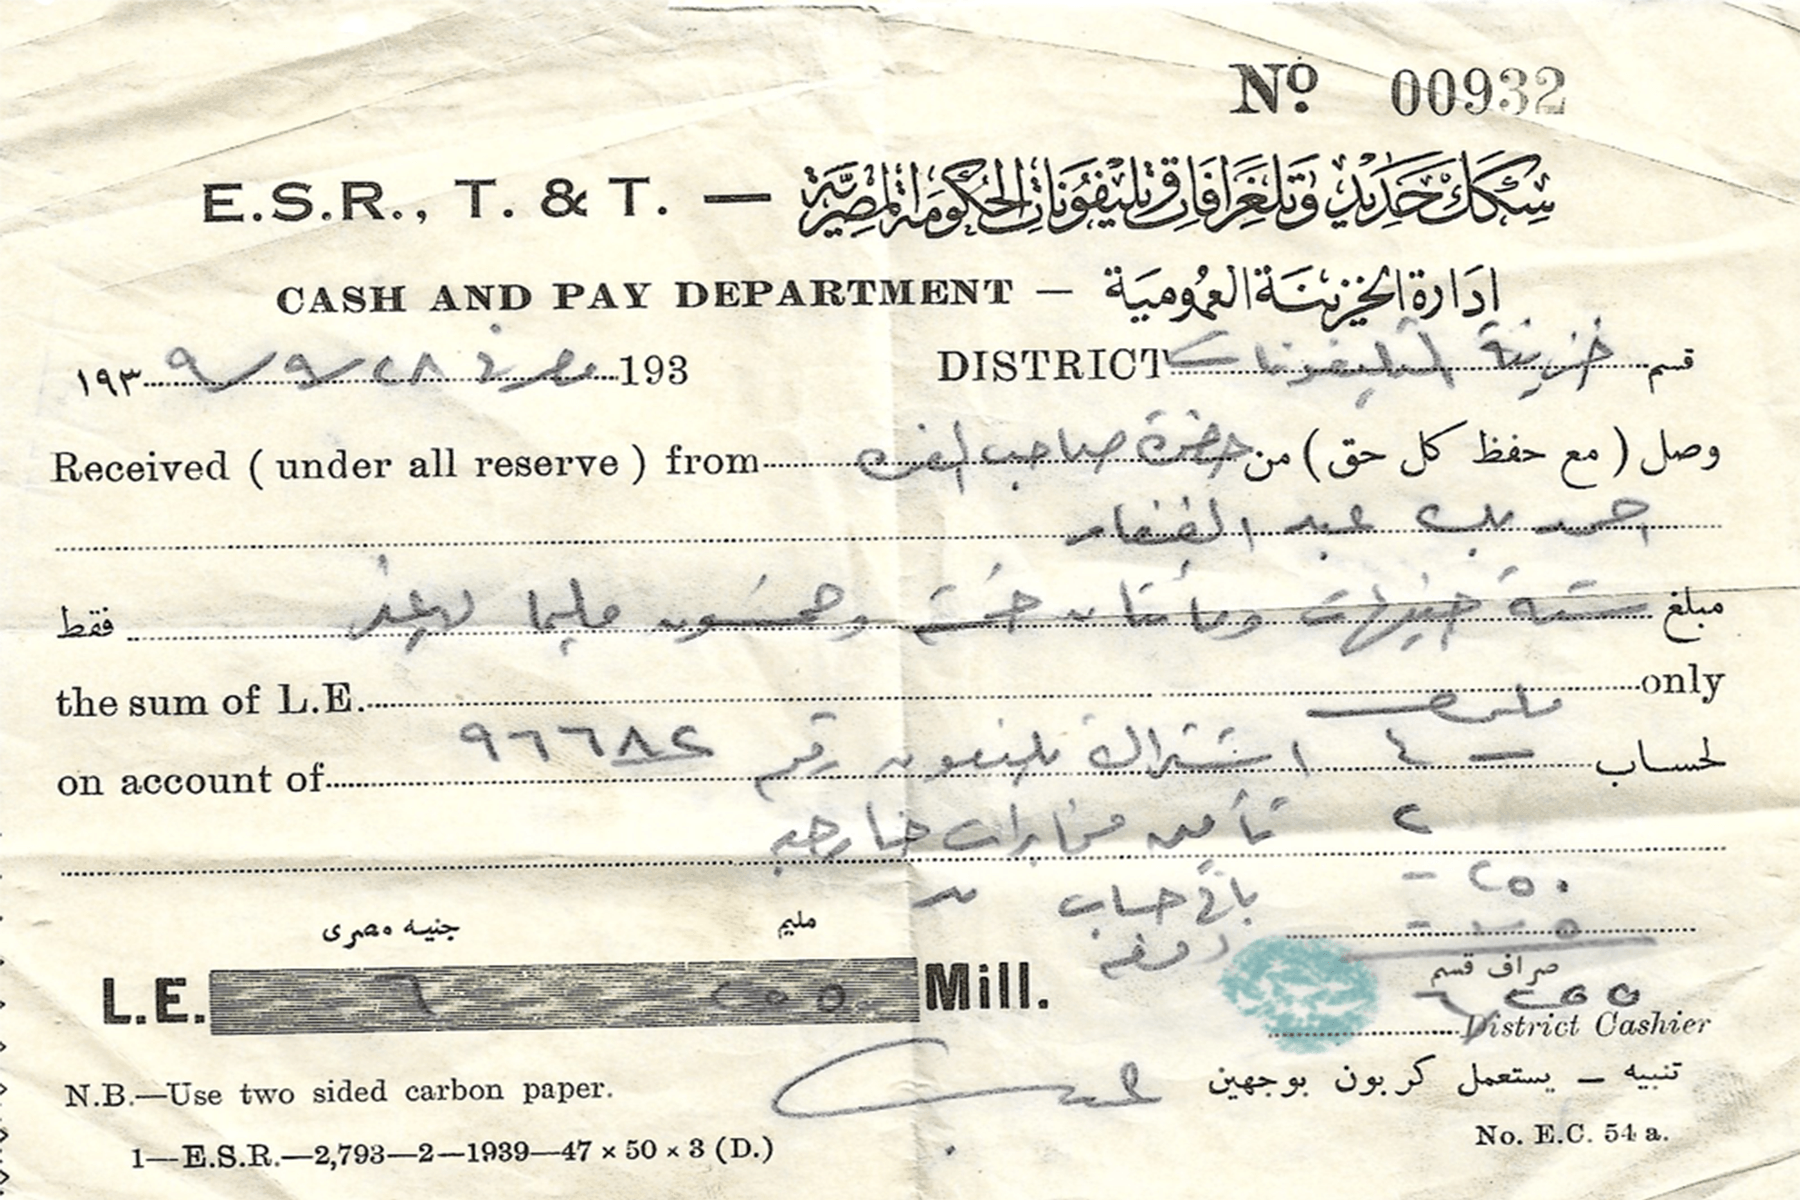 Nº 00932
E.S.R., T. & T. — سكك حديد وتلغرافات وتليفونات الحكومة المصرية
CASH AND PAY DEPARTMENT — ادارة الخزينة العمومية
١٩٣ ٩/٩/٢٨ في مصر 193 DISTRICT خزينة التليفونات قسم
Received ( under all reserve ) from حضرة صاحب العزة وصل ( مع حفظ كل حق ) من
احمد بك عبد الغفار
مبلغ ستة جنيهات ومائتان خمسة وخمسون مليما لاغير فقط
the sum of L.E. only
on account of لحساب ٤ — اشتراك تليفون رقم ٩٦٦٨٢
٢ تأمين مخابرات خارجيه
- ٢٥٠ باقي حساب
جنيه مصرى مليم
صراف قسم
L.E. ٦ ٢٥٥ Mill.
٦ ٢٥٥
District Cashier
N.B.—Use two sided carbon paper. تنبيه – يستعمل كربون بوجهين
1—E.S.R.—2,793—2—1939—47 × 50 × 3 (D.) No. E.C. 54 a.